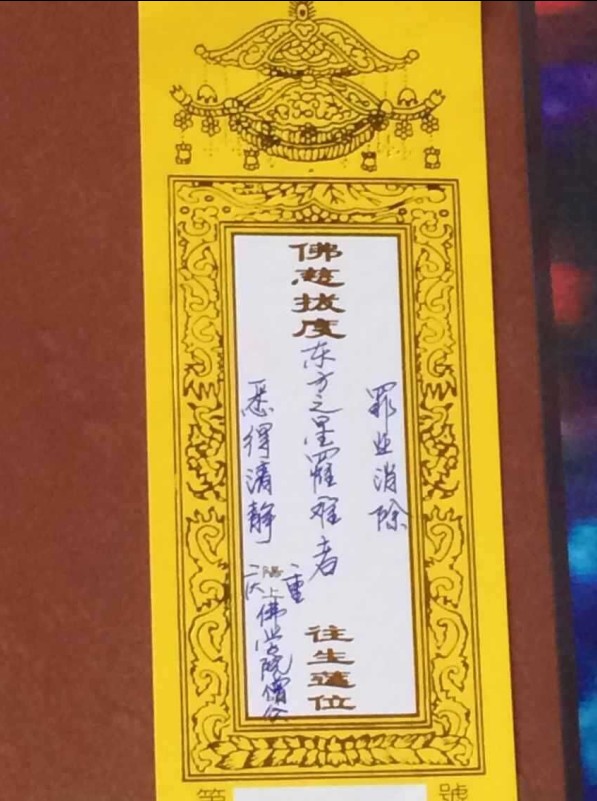 罪业消除
佛慈拔度
东方之星罹难者
往生蓮位
悉得清静
陽上
重庆佛学院僧众
第
號